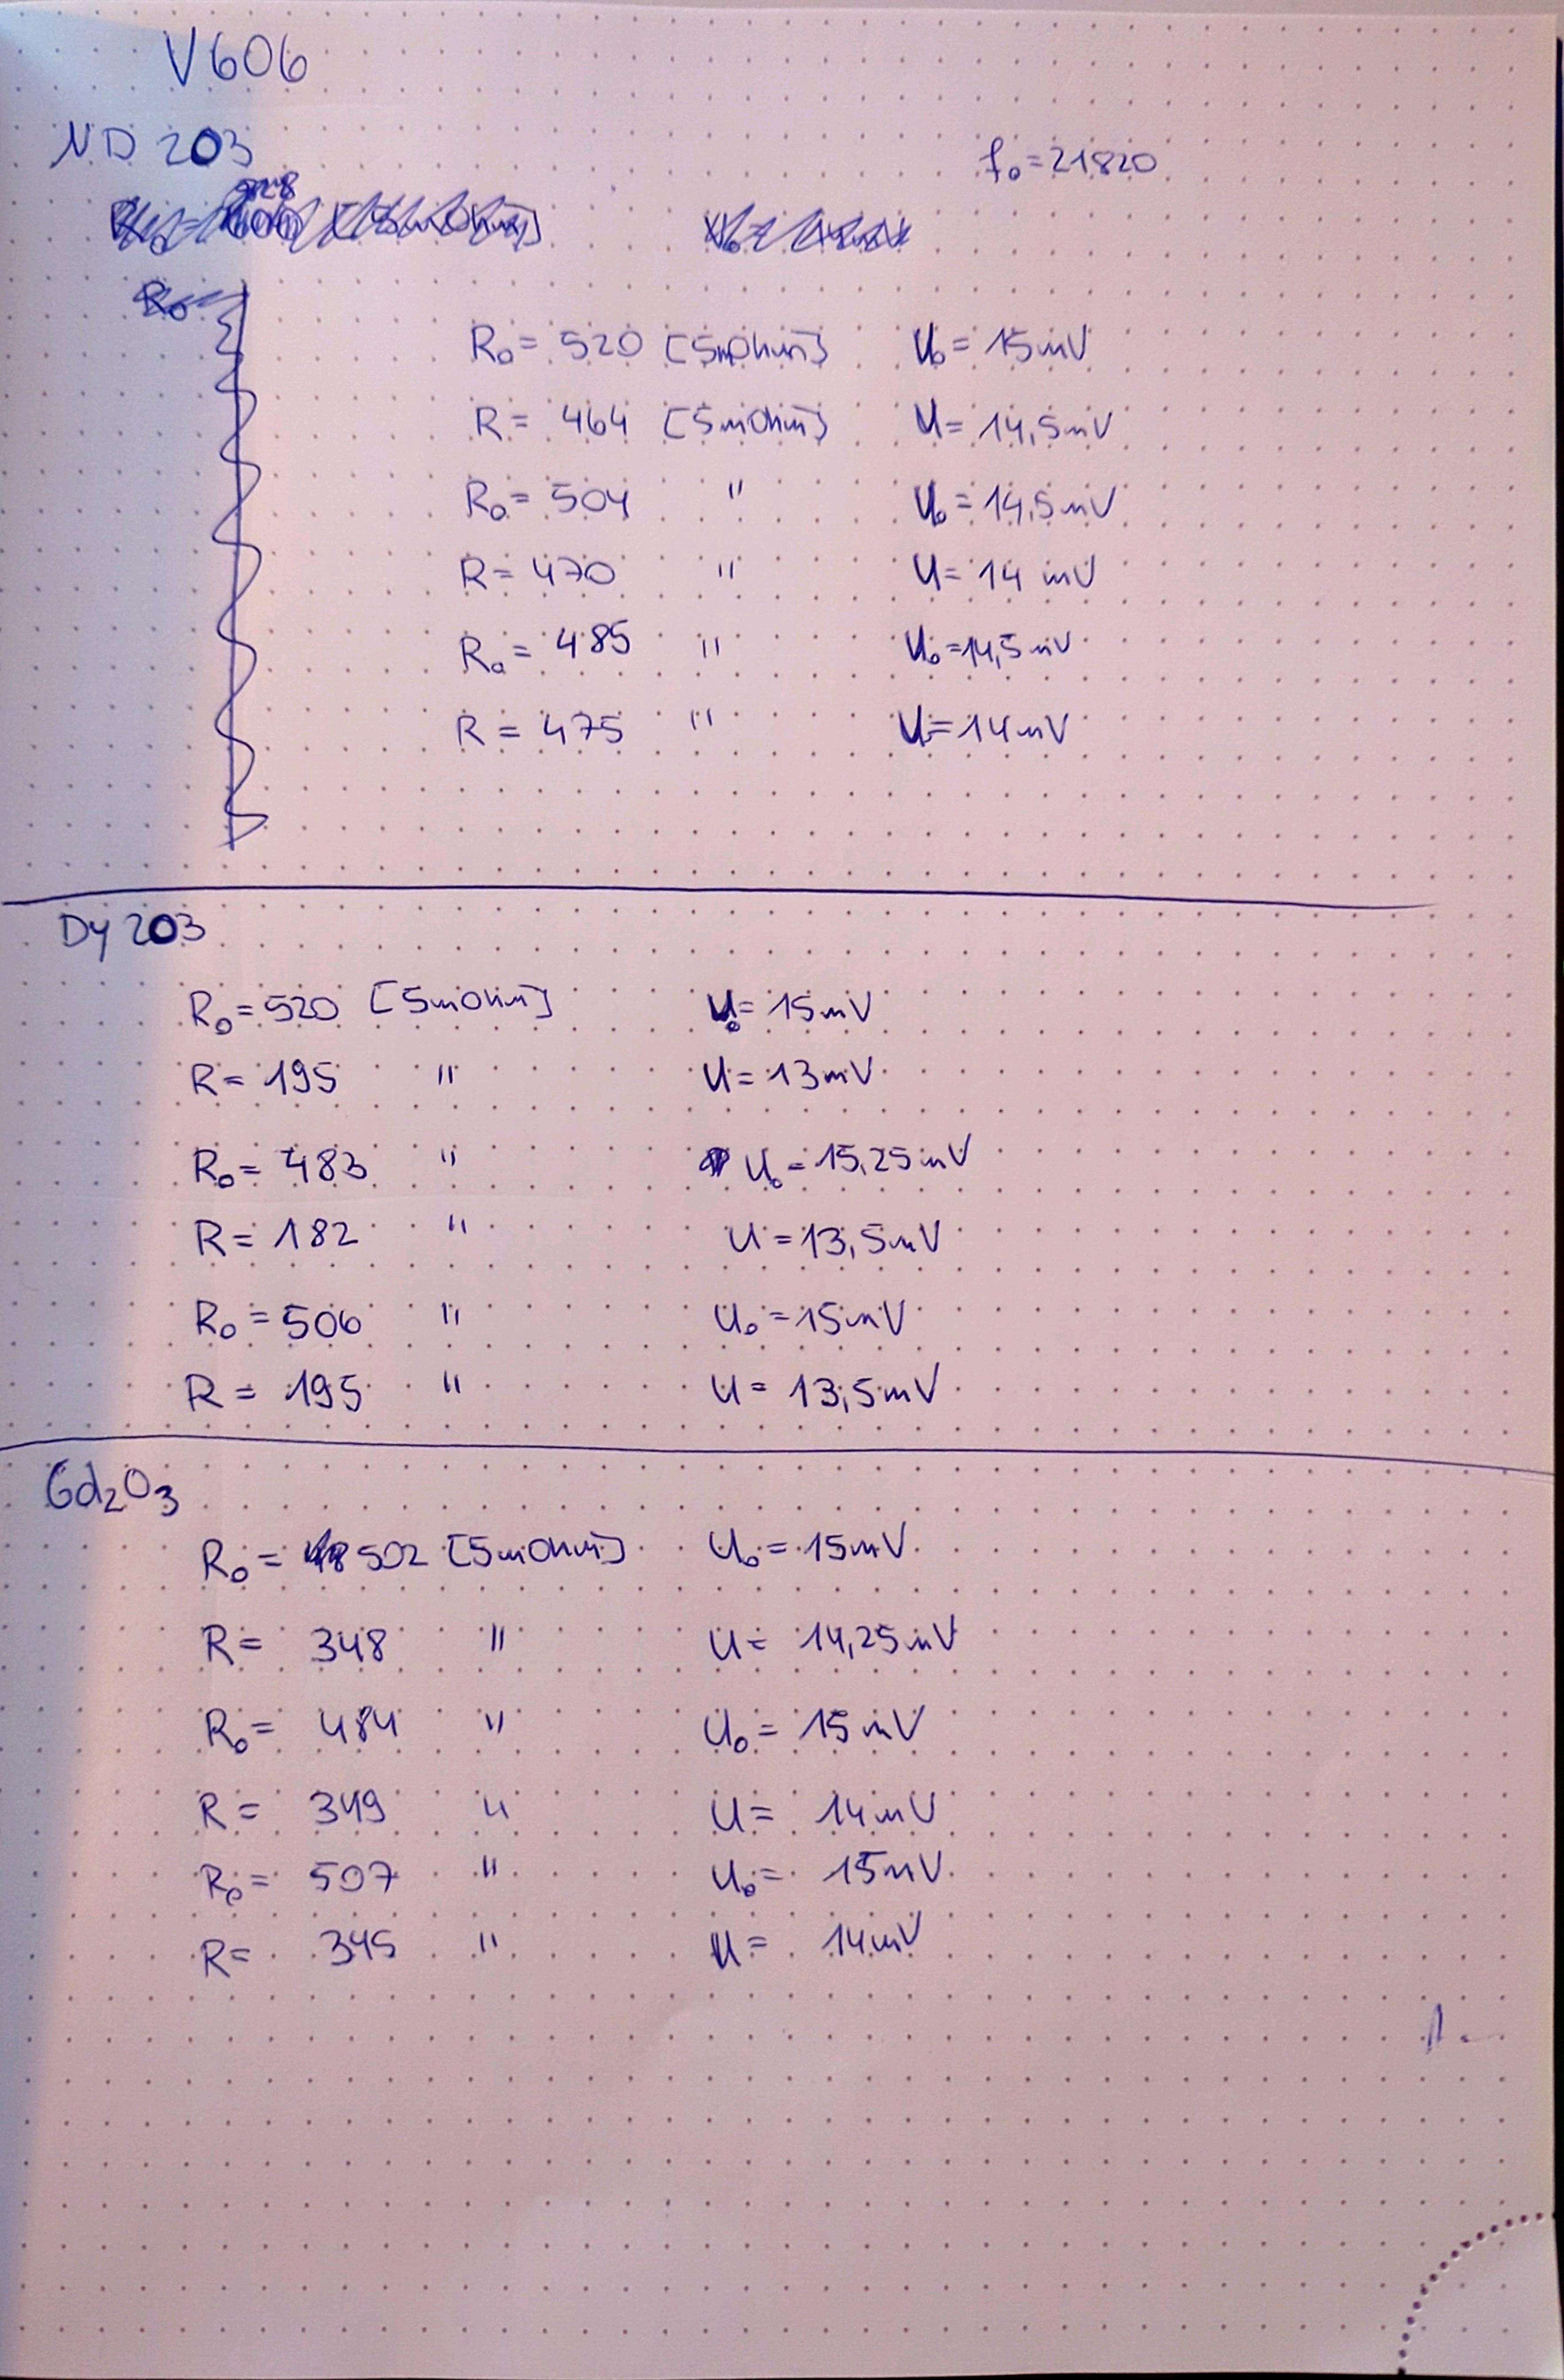 V606
ND 203
f₀ = 21820
R₀ = 520 [5mOhm] U₀ = 15mV
R = 464 [5mOhm] U = 14,5mV
R₀ = 504 " U₀ = 14,5mV
R = 470 " U = 14 mV
R₀ = 485 " U₀ = 14,5mV
R = 475 " U = 14mV
Dy 203
R₀ = 520 [5mOhm] U₀ = 15mV
R = 195 " U = 13mV
R₀ = 483 " U₀ = 15,25mV
R = 182 " U = 13,5mV
R₀ = 506 " U₀ = 15mV
R = 195 " U = 13,5mV
Gd₂O₃
R₀ = 502 [5mOhm] U₀ = 15mV
R = 348 " U = 14,25mV
R₀ = 484 " U₀ = 15mV
R = 349 " U = 14mV
R₀ = 507 " U₀ = 15mV
R = 345 " U = 14mV